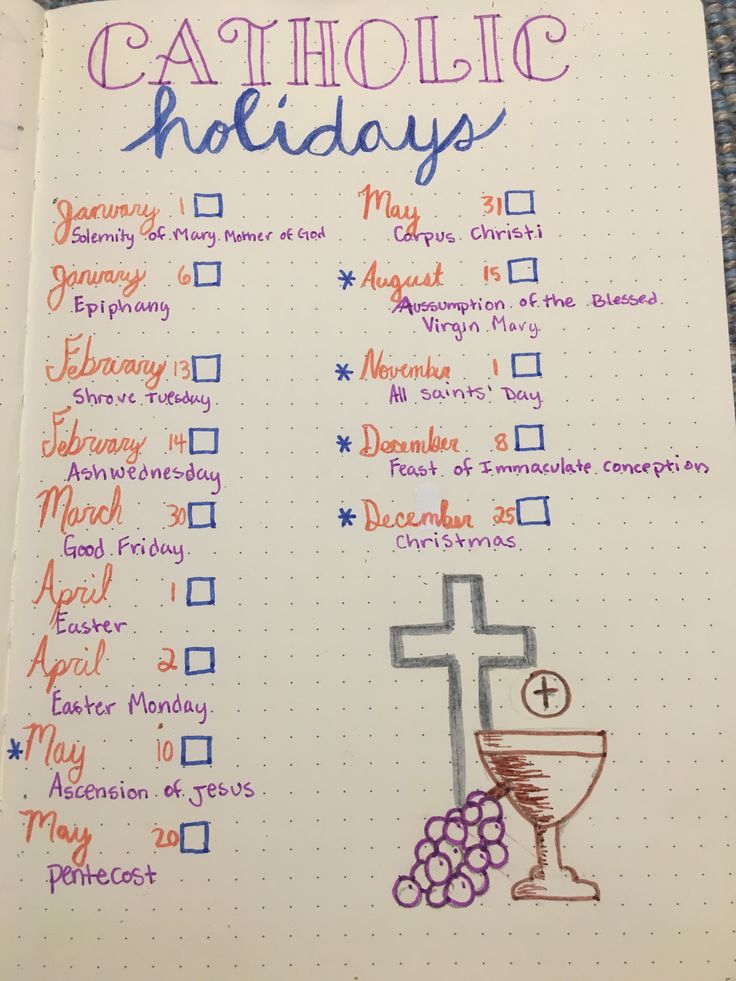 CATHOLIC
holidays
January 1
Solemnity of Mary Mother of God
January 6
Epiphany
February 13
Shrove Tuesday
February 14
Ash wednesday
March 30
Good Friday
April 1
Easter
April 2
Easter Monday
* May 10
Ascension of Jesus
May 20
pentecost
May 31
Corpus Christi
* August 15
Aussumption of the Blessed
Virgin Mary
* November 1
All saints' Day
* December 8
Feast of Immaculate conception
* December 25
Christmas